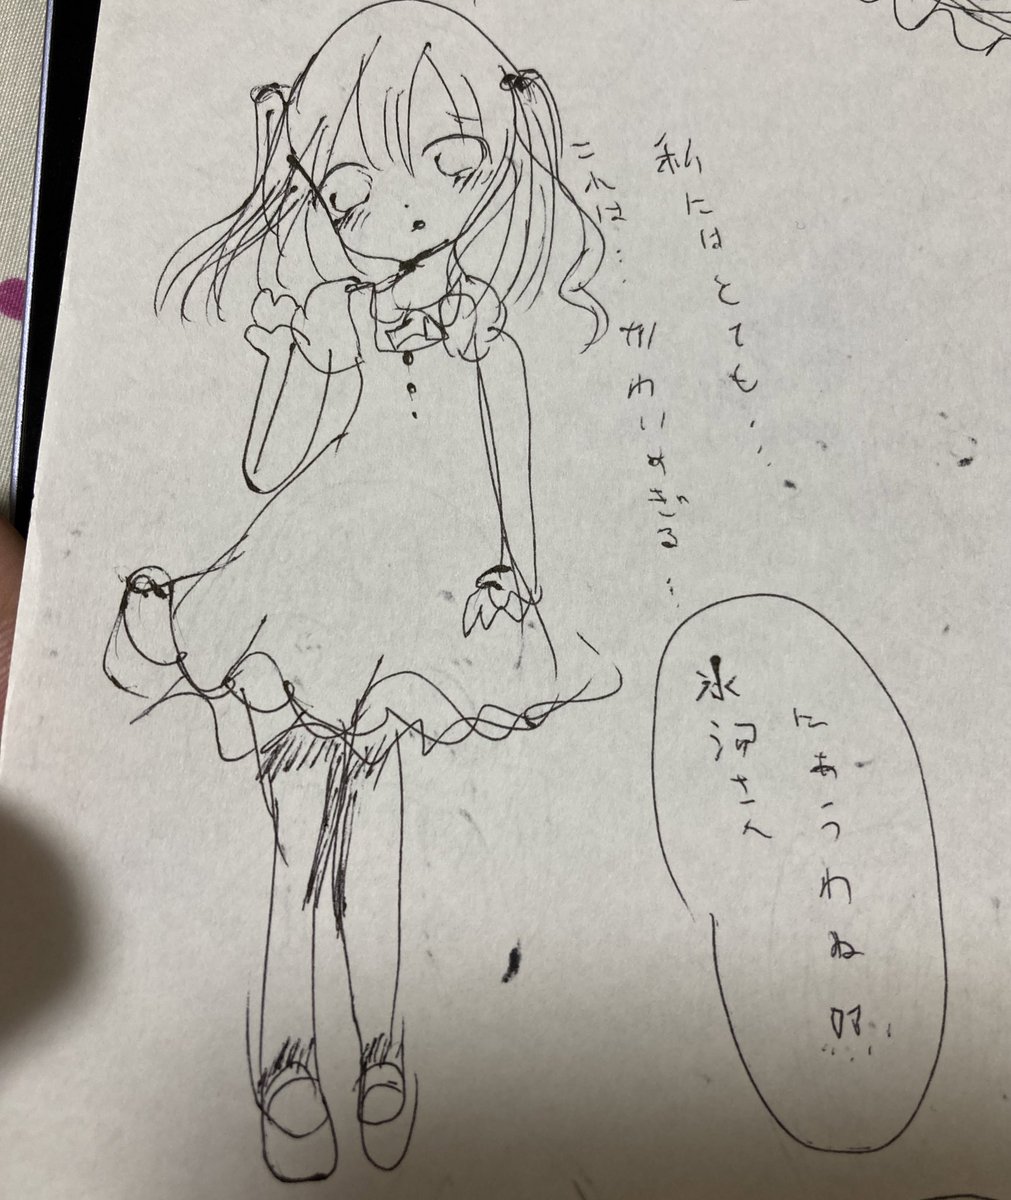 私にはとても…
これは… かわいすぎる…
にあうわね!!
氷河さん